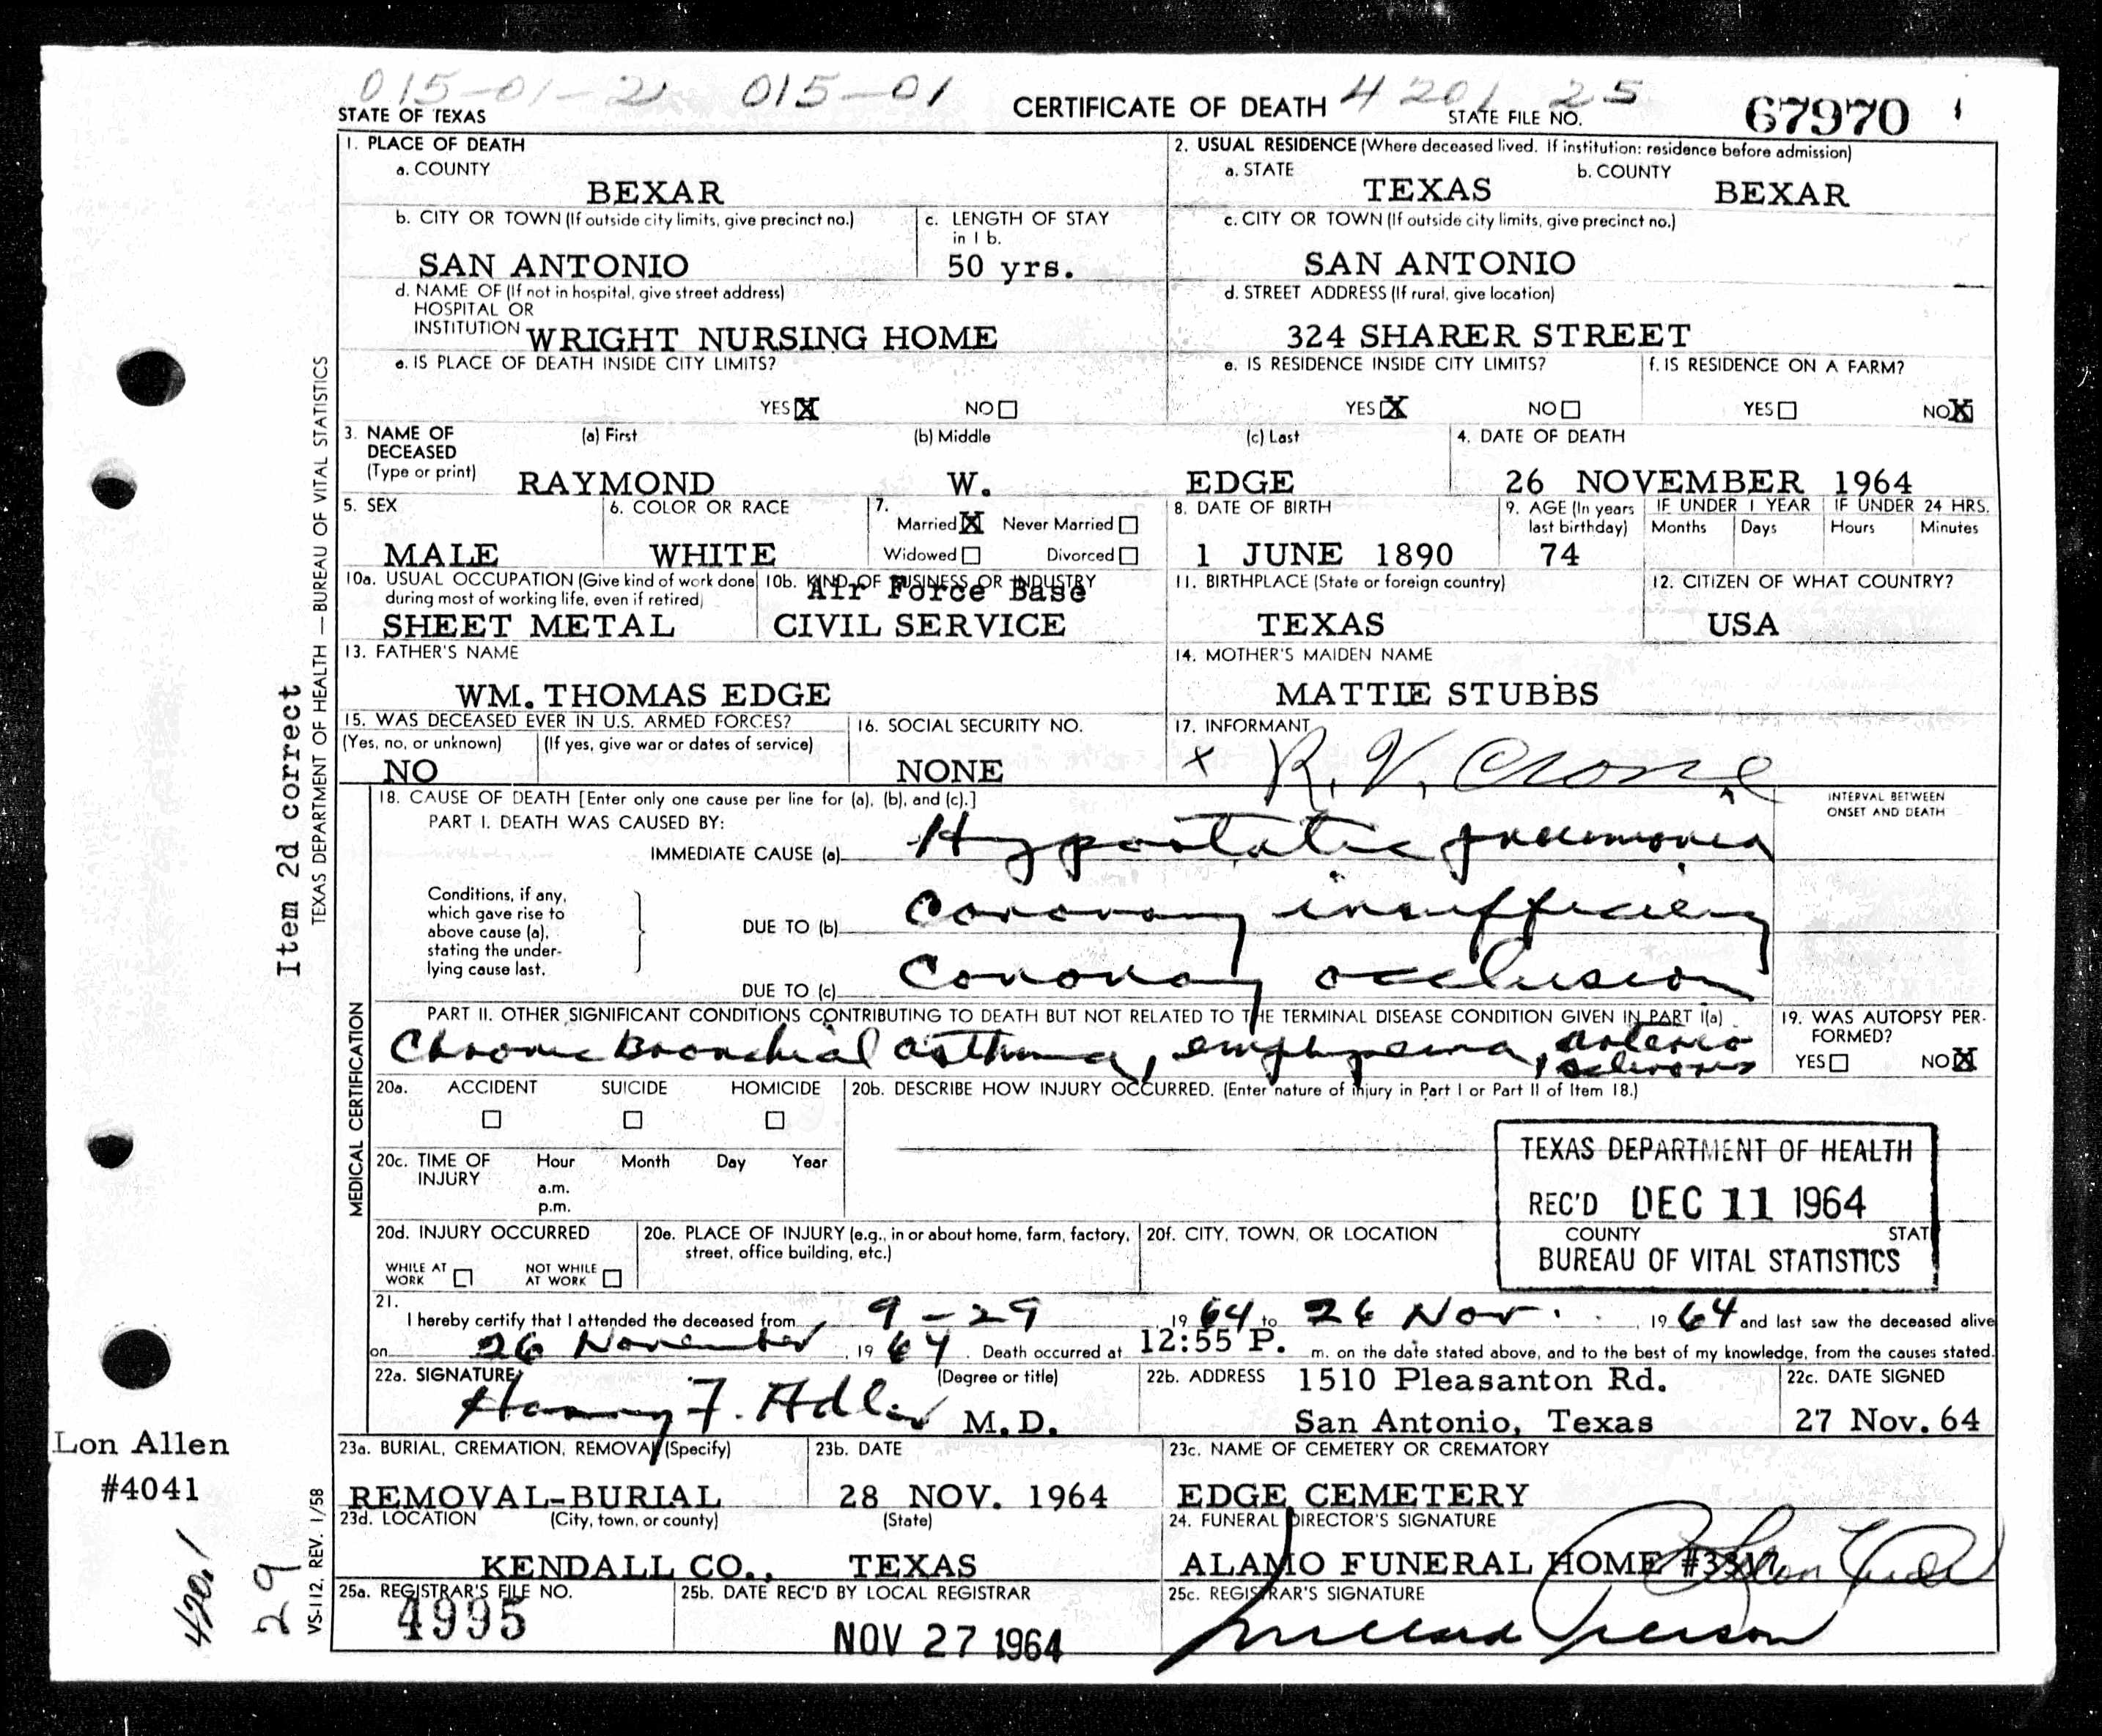 015-01-2 015-01 4201 25
STATE OF TEXAS CERTIFICATE OF DEATH STATE FILE NO. 67970
1. PLACE OF DEATH
a. COUNTY
BEXAR
2. USUAL RESIDENCE (Where deceased lived. If institution: residence before admission)
a. STATE b. COUNTY
TEXAS BEXAR
b. CITY OR TOWN (If outside city limits, give precinct no.)
SAN ANTONIO
c. LENGTH OF STAY
in 1 b.
50 yrs.
c. CITY OR TOWN (If outside city limits, give precinct no.)
SAN ANTONIO
d. NAME OF (If not in hospital, give street address)
HOSPITAL OR
INSTITUTION WRIGHT NURSING HOME
d. STREET ADDRESS (If rural, give location)
324 SHARER STREET
e. IS PLACE OF DEATH INSIDE CITY LIMITS?
YES X NO
e. IS RESIDENCE INSIDE CITY LIMITS?
YES X NO
f. IS RESIDENCE ON A FARM?
YES NO X
3. NAME OF
DECEASED
(Type or print)
(a) First (b) Middle (c) Last
RAYMOND W. EDGE
4. DATE OF DEATH
26 NOVEMBER 1964
5. SEX
MALE
6. COLOR OR RACE
WHITE
7.
Married X Never Married
Widowed Divorced
8. DATE OF BIRTH
1 JUNE 1890
9. AGE (In years
last birthday)
74
IF UNDER 1 YEAR
Months Days
IF UNDER 24 HRS.
Hours Minutes
10a. USUAL OCCUPATION (Give kind of work done
during most of working life, even if retired)
SHEET METAL
10b. KIND OF BUSINESS OR INDUSTRY
Air Force Base
CIVIL SERVICE
11. BIRTHPLACE (State or foreign country)
TEXAS
12. CITIZEN OF WHAT COUNTRY?
USA
13. FATHER'S NAME
WM. THOMAS EDGE
14. MOTHER'S MAIDEN NAME
MATTIE STUBBS
15. WAS DECEASED EVER IN U.S. ARMED FORCES?
(Yes, no, or unknown) (If yes, give war or dates of service)
NO
16. SOCIAL SECURITY NO.
NONE
17. INFORMANT
X R. V. Crone
18. CAUSE OF DEATH [Enter only one cause per line for (a), (b), and (c).]
PART I. DEATH WAS CAUSED BY:
INTERVAL BETWEEN
ONSET AND DEATH
IMMEDIATE CAUSE (a) Hypostatic pneumonia
Conditions, if any,
which gave rise to
above cause (a),
stating the under-
lying cause last.
DUE TO (b) Coronary insufficiency
DUE TO (c) Coronary occlusion
PART II. OTHER SIGNIFICANT CONDITIONS CONTRIBUTING TO DEATH BUT NOT RELATED TO THE TERMINAL DISEASE CONDITION GIVEN IN PART I(a)
Chronic Bronchial asthma, emphysema, arterio
sclerosis
19. WAS AUTOPSY PER-
FORMED?
YES NO X
20a. ACCIDENT SUICIDE HOMICIDE
20b. DESCRIBE HOW INJURY OCCURRED. (Enter nature of injury in Part I or Part II of Item 18.)
20c. TIME OF
INJURY
Hour Month Day Year
a.m.
p.m.
TEXAS DEPARTMENT OF HEALTH
REC'D DEC 11 1964
BUREAU OF VITAL STATISTICS
20d. INJURY OCCURRED
WHILE AT
WORK
NOT WHILE
AT WORK
20e. PLACE OF INJURY (e.g., in or about home, farm, factory,
street, office building, etc.)
20f. CITY, TOWN, OR LOCATION COUNTY STAT
21.
I hereby certify that I attended the deceased from 9-29, 1964 to 26 Nov., 1964 and last saw the deceased alive
on 26 November, 1964. Death occurred at 12:55 P. m. on the date stated above, and to the best of my knowledge, from the causes stated.
22a. SIGNATURE (Degree or title)
Harry F. Adler M.D.
22b. ADDRESS 1510 Pleasanton Rd.
San Antonio, Texas
22c. DATE SIGNED
27 Nov. 64
23a. BURIAL, CREMATION, REMOVAL (Specify)
REMOVAL-BURIAL
23b. DATE
28 NOV. 1964
23c. NAME OF CEMETERY OR CREMATORY
EDGE CEMETERY
23d. LOCATION (City, town, or county) (State)
KENDALL CO., TEXAS
24. FUNERAL DIRECTOR'S SIGNATURE
ALAMO FUNERAL HOME
25a. REGISTRAR'S FILE NO.
4995
25b. DATE REC'D BY LOCAL REGISTRAR
NOV 27 1964
25c. REGISTRAR'S SIGNATURE
Item 2d correct
TEXAS DEPARTMENT OF HEALTH — BUREAU OF VITAL STATISTICS
MEDICAL CERTIFICATION
VS-112, REV. 1/58
Lon Allen
#4041
420.1
29